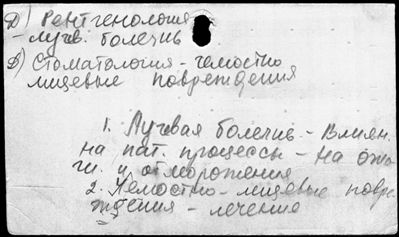 Д) Рентгенология
- лучев. болезнь
Д) Стоматология - челюстно
лицевые повреждения
1. Лучевая болезнь - Влиян.
на пат. процессы - на ожо
ги и отморожения
2. Челюстно-лицевые повре
ждения - лечение